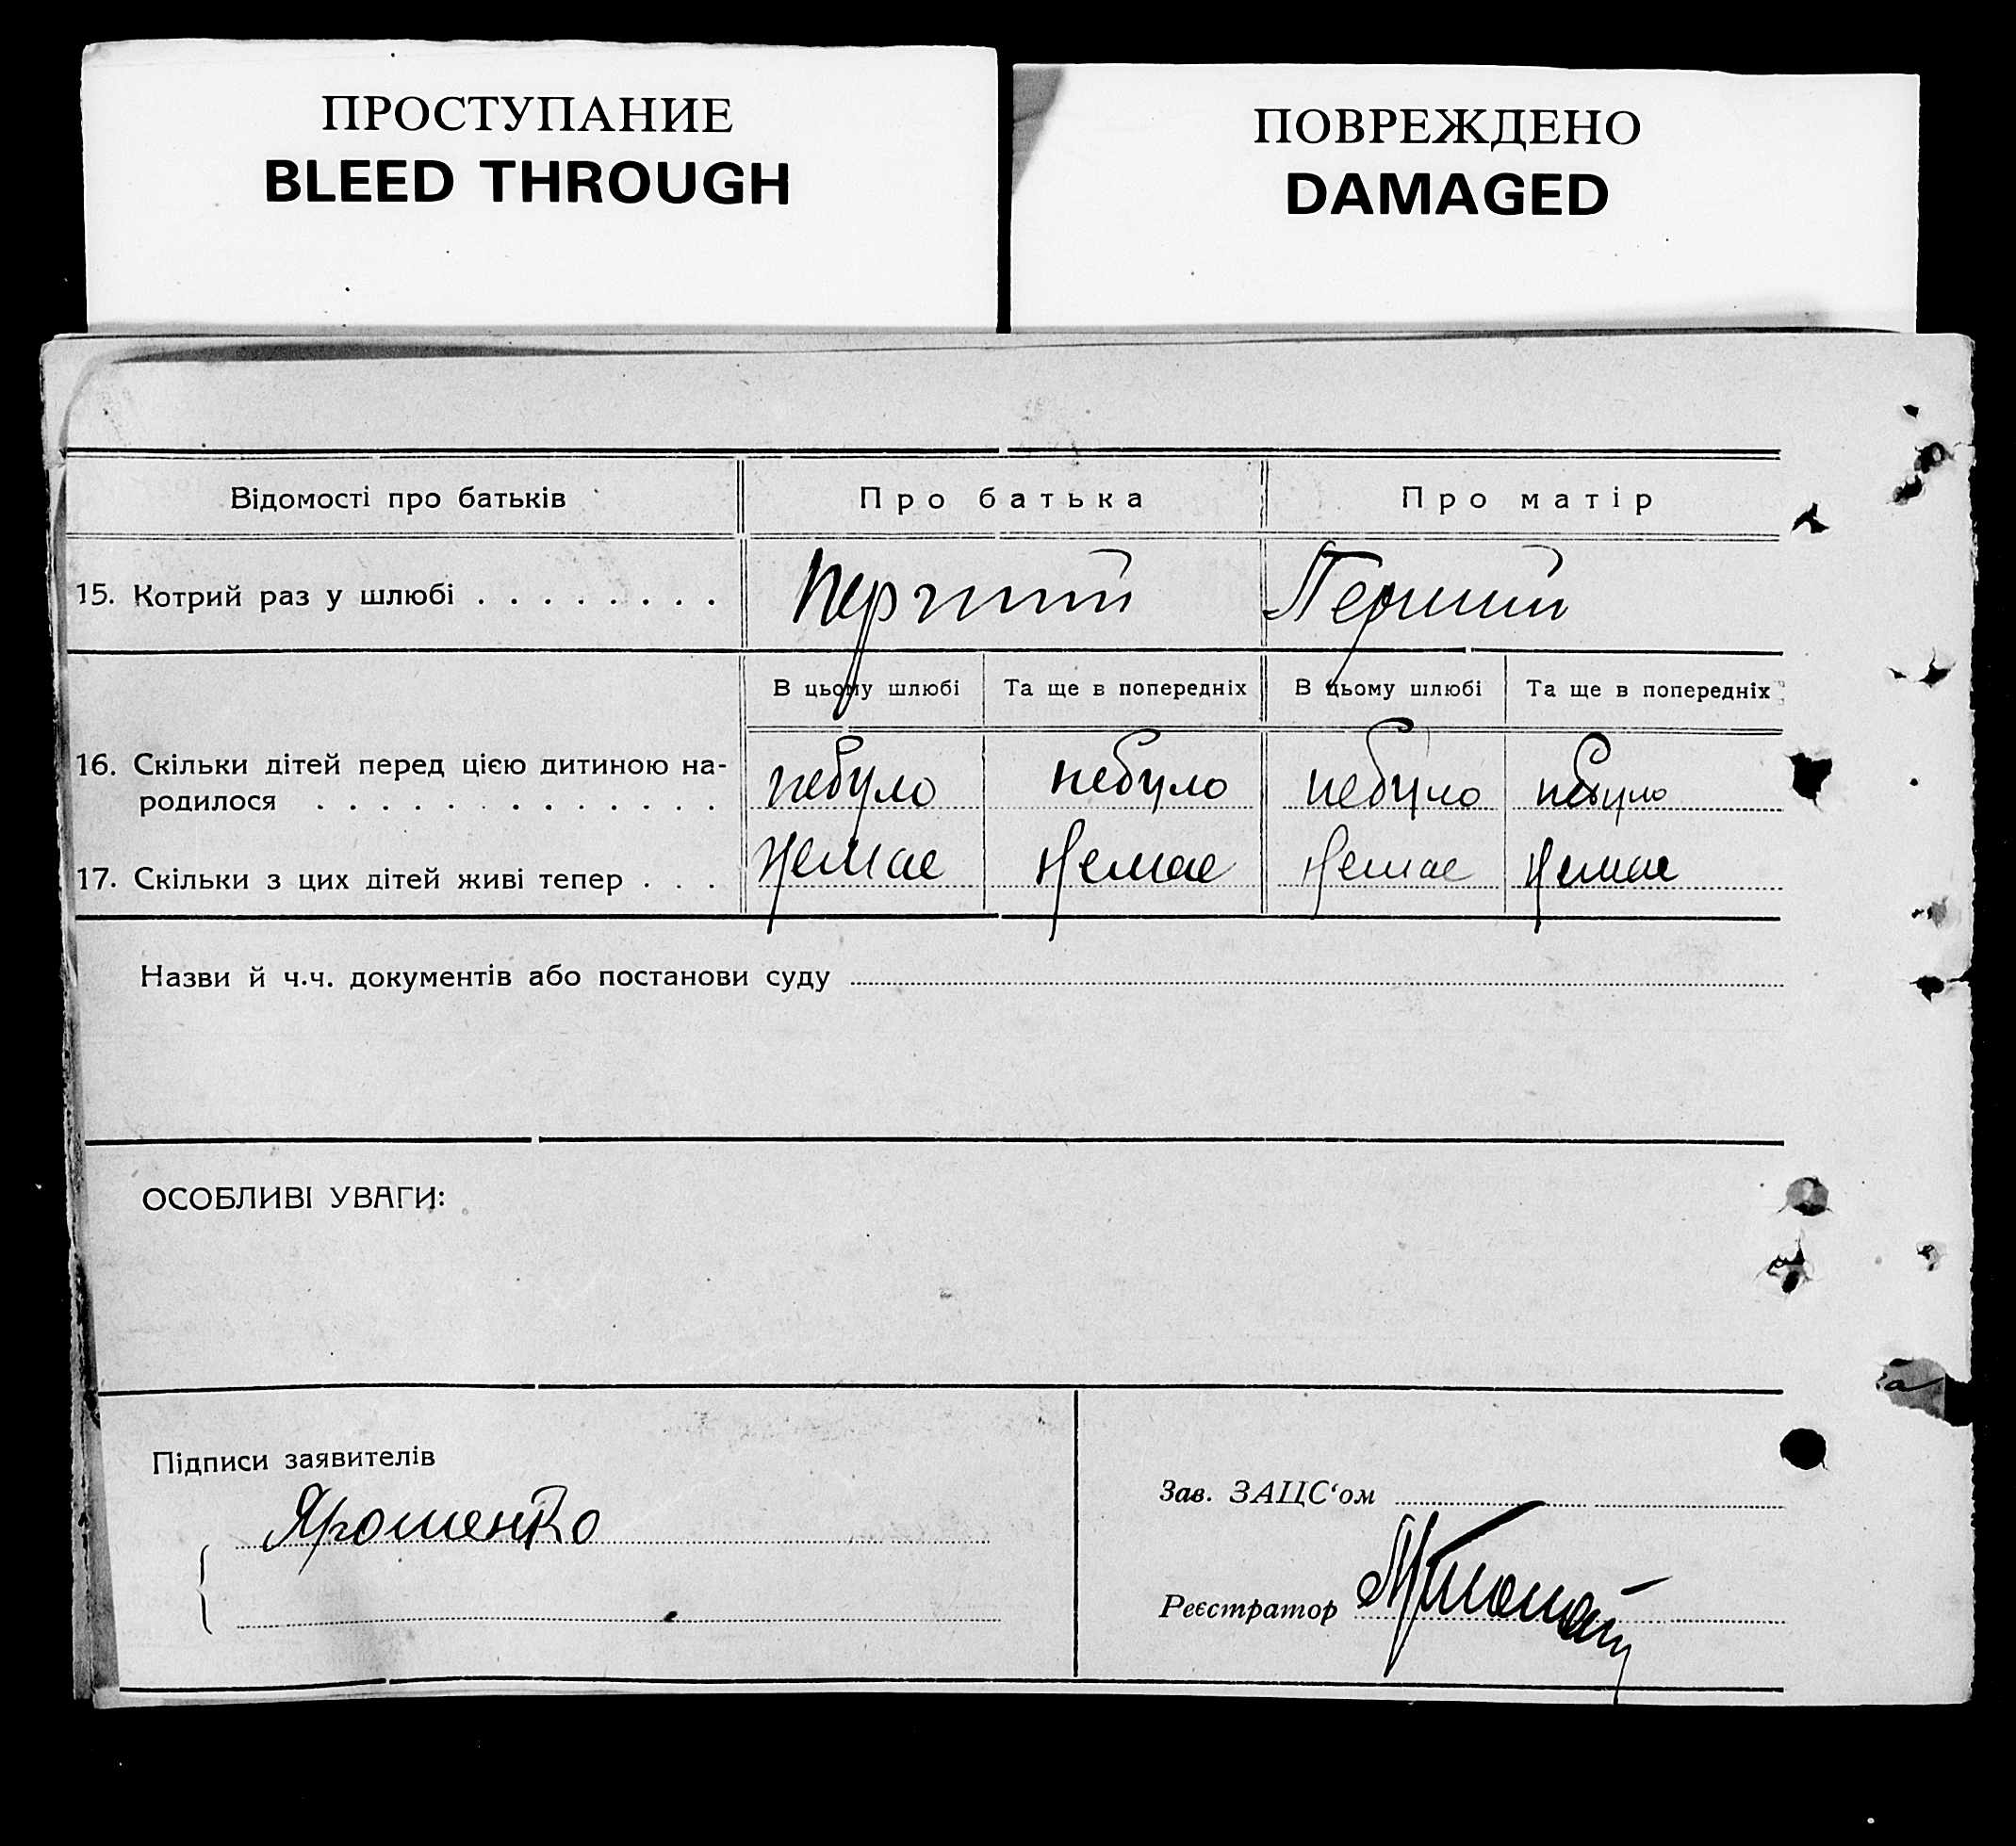 ПРОСТУПАНИЕ
BLEED THROUGH
ПОВРЕЖДЕНО
DAMAGED
Відомості про батьків Про батька Про матір
15. Котрий раз у шлюбі . . . . . . . . Перший Перший
В цьому шлюбі Та ще в попередніх В цьому шлюбі Та ще в попередніх
16. Скільки дітей перед цією дитиною на-
родилося . . . . . . . . . . . . . небуло небуло небуло небуло
17. Скільки з цих дітей живі тепер . . . Немае Немае Немае Немае
Назви й ч.ч. документів або постанови суду
ОСОБЛИВІ УВАГИ:
Підписи заявителів
Ярошенко
Зав. ЗАЦС‘ом
Реєстратор